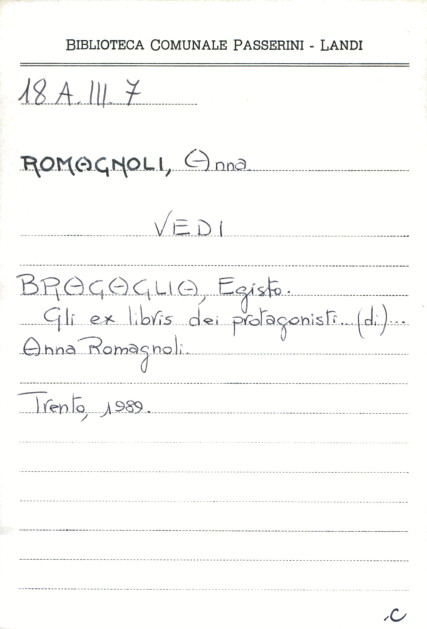 BIBLIOTECA COMUNALE PASSERINI - LANDI
18 A. III. 7
ROMAGNOLI, Anna
VEDI
BRAGAGLIA, Egisto.
Gli ex libris dei protagonisti... (di)...
Anna Romagnoli.
Trento, 1989.
.C